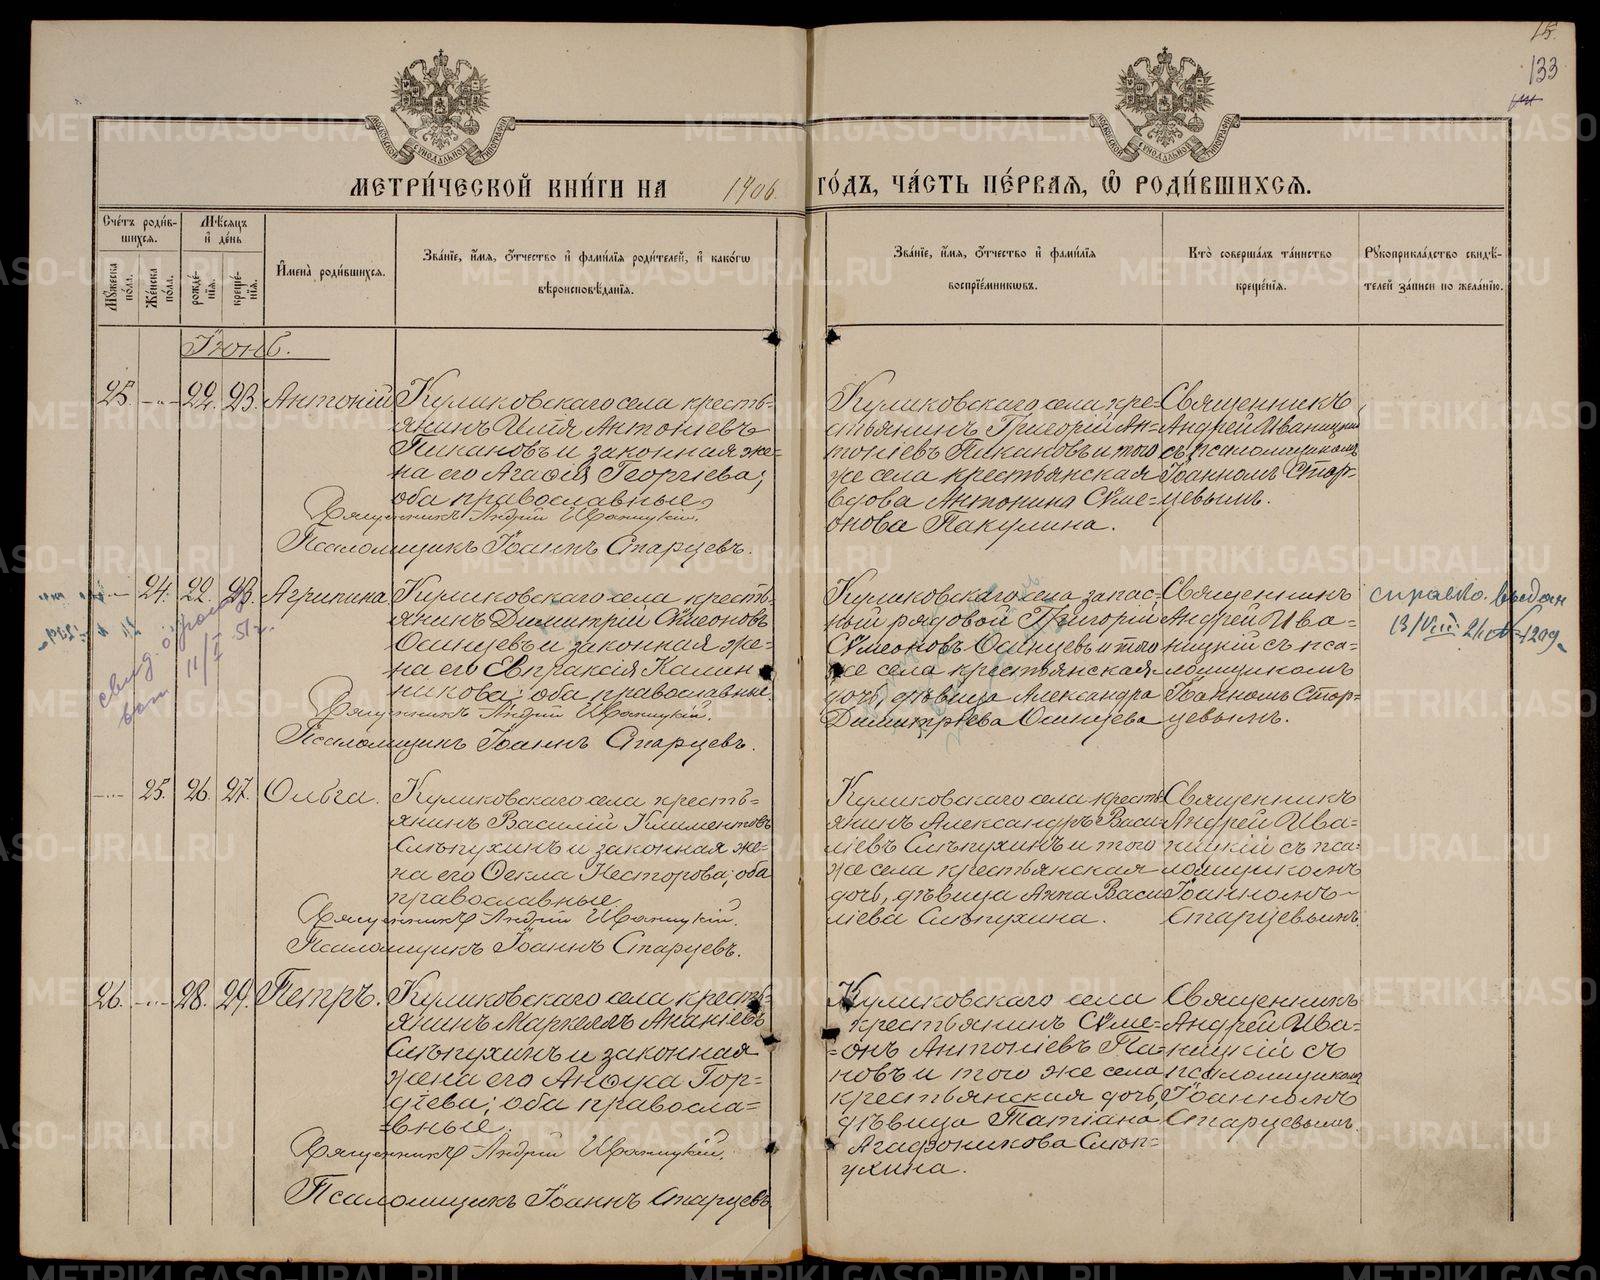 15.
133
МЕТРИ́ЧЕСКОЙ КНИ́ГИ НА 1906. ГО́ДЪ, ЧА́СТЬ ПЕ́РВАЯ, Ѡ҆ РОДИ́ВШИХСЯ.
Сче́тъ роди́в-
шихся.
Мѣ́сяцъ
и҆ де́нь
Мꙋ́жеска по́ла.
Же́нска по́ла.
рожде́-
нїя.
креще́-
нїя.
И҆мена̀ роди́вшихся.
Зва́нїе, и҆́мя, ѻ҆́тчество и҆ фами́лїя роди́телей, и҆ како́гѡ
вѣроисповѣ́данїя.
Зва́нїе, и҆́мя, ѻ҆́тчество и҆ фами́лїя
воспрїе́мникѡвъ.
Кто̀ соверша́лъ та́инство
креще́нїя.
Рꙋкоприкла́дство свидѣ́-
телей за́писи по жела́нїю.
Іюнь.
25. -„- 22. 23. Антоній
Куликовскаго села кресть=
янинъ Илія Антоніевъ
Пикановъ и законная же=
на его Агаѳія Георгіева;
оба православные,
Священникъ Андрій Иваницкій.
Псаломщикъ Іоаннъ Старцевъ.
Куликовскаго села кре-
стьянинъ Григорій Ан-
тоніевъ Пикановъ и того
же села крестьянская
вдова Антонина Сѵме-
онова Пакулина.
Священникъ
Андрей Иваницкій
съ псаломщикомъ
Іоанномъ Стар-
цевымъ.
-„- 24. 22. 23. Агрипина.
Куликовскаго села кресть-
янинъ Димитрій Сѵмеоновъ
Осинцевъ и законная же=
на его Евпраксія Калин
никова; оба православные.
Священникъ Андрій Иваницкій.
Псаломщикъ Іоаннъ Старцевъ.
Куликовскаго села запас=
ный рядовой Григорій
Сѵмеоновъ Осинцевъ и того
же села крестьянская
дочь, дѣвица Александра
Димитріева Осинцева
Священникъ
Андрей Ива=
ницкій съ пса-
ломщикомъ
Іоанномъ Стар=
цевымъ.
справка выдан
13/VIII
1209
свид. о рожд
11/I 51 г.
-„- 25. 26. 27. Ольга.
Куликовскаго села кресть=
янинъ Василій Климентовъ
Слѣпухинъ и законная же=
на его Ѳекла Несторова; оба
православные.
Священникъ Андрій Иваницкій.
Псаломщикъ Іоаннъ Старцевъ.
Куликовскаго села кресть
янинъ Александръ Васи-
ліевъ Слѣпухинъ и того
же села крестьянская
дочь, дѣвица Анна Васи
ліева Слѣпухина.
Священникъ
Андрей Ива=
ницкій съ пса-
ломщикомъ
Іоанномъ
Старцевымъ.
26. -„- 28. 29. Петръ.
Куликовскаго села кресть-
янинъ Маркеллъ Ананіевъ
Слѣпухинъ и законная
жена его Анѳуса Гор=
діева; оба правосла=
=вные.
Священникъ Андрій Иваницкій.
Псаломщикъ Іоаннъ Старцевъ
Куликовскаго села
крестьянинъ Сѵме=
=онъ Антоніевъ Па-
новъ и того же села
крестьянская дочь,
дѣвица Татіана
Агафоникова Слѣп=
ухина.
Священникъ
Андрей Ива=
ницкій съ
псаломщикомъ
Іоанномъ
Старцевымъ.
METRIKI.GASO-URAL.RU